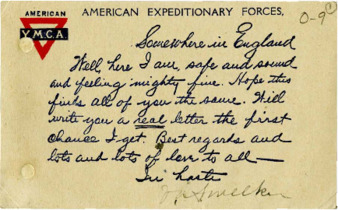 AMERICAN
Y.M.C.A.
AMERICAN EXPEDITIONARY FORCES.
O-9
Somewhere in England
Well here I am, safe and sound
and feeling mighty fine. Hope this
finds all of you the same. Will
write you a real letter the first
chance I get. Best regards and
lots and lots of love to all—